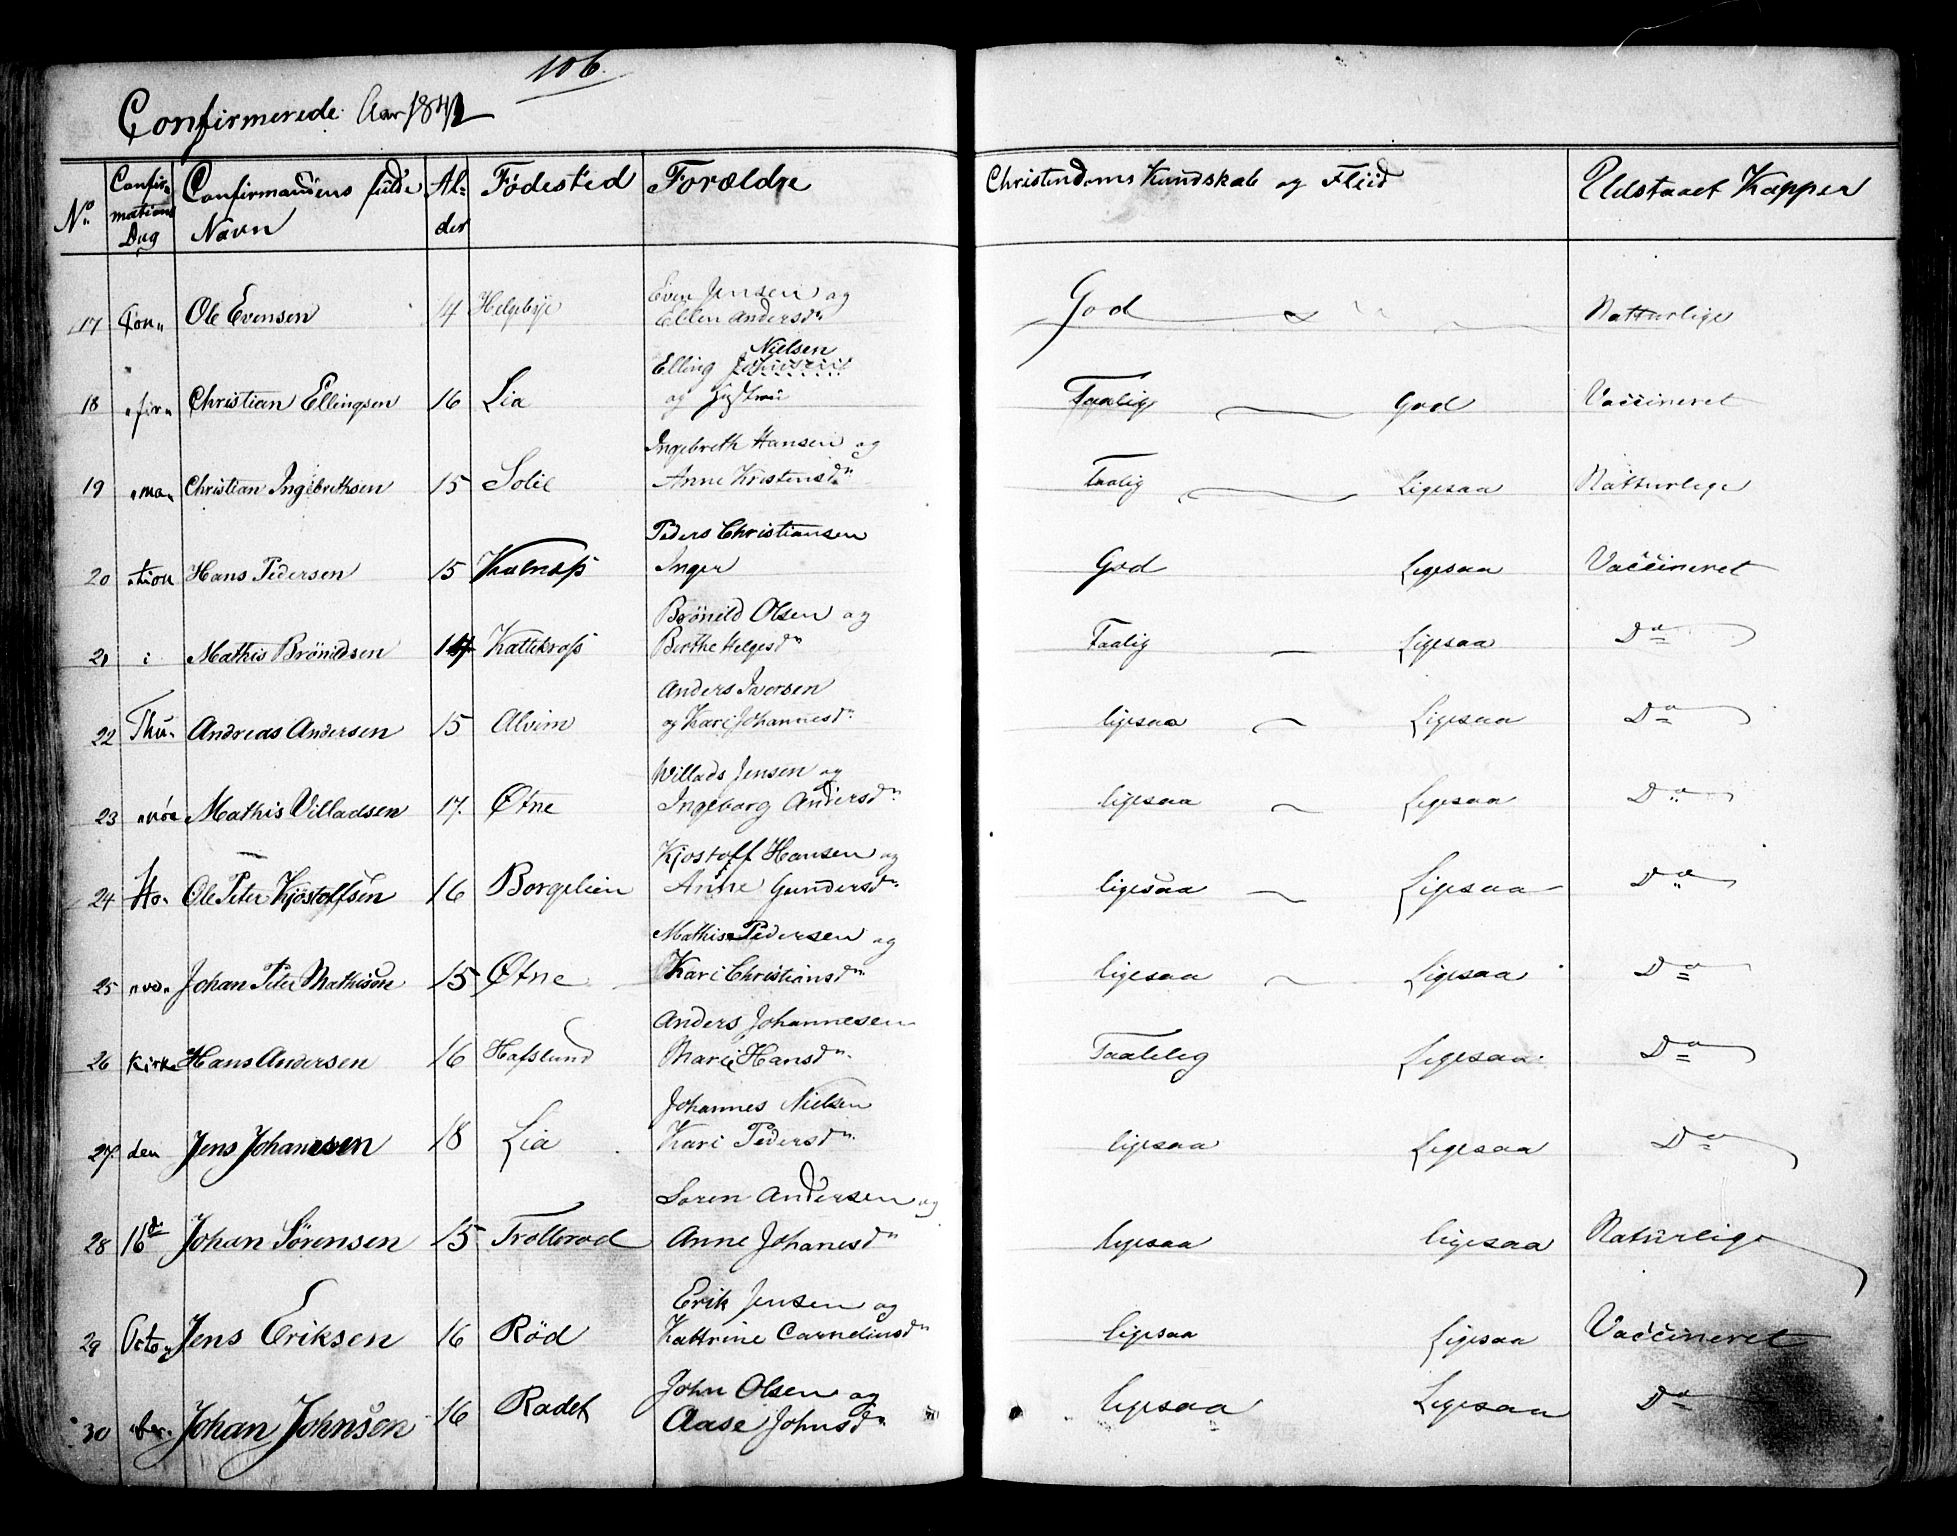 106.
Confirmerede Aar 1841
No
Confirmations Dag
Confirmandens fulde Navn
Alder
Fødested
Forældre
Christendoms Kundskab og Fliid
Udstaaet Kopper
17 Con„ Ole Evensen 14 Helgebye Even Jensen og Ellen Andersdn God Natturlige
18 „fir„ Christian Ellingsen 16 Lia Elling Nielsen og Taalig God Vaccineret
19 „ma„ Christian Ingebrethsen 15 Solie Ingebreth Hansen og Anne Kristensdn Taalig Ligesaa Natturlige
20 „tion Hans Pedersen 15 Kalnæss Peders Christiansen Inger God Ligesaa Vaccineret
21 i Mathis Brönildsen 14 Kattekrass Brönild Olsen og Berthe Helgesdn Taalig Ligesaa Do
22 Thu„ Andreas Andersen 15 Alvim Anders Iversen og Kari Johannesdn ligesaa Ligesaa Do
23 „nöe Mathis Villadsen 17. Øtne Willads Jensen og Ingeborg Andersdn ligesaa Ligesaa Do
24 Ho„ Ole Peter Kjöstolfsen 16 Borgelien Kjostoff Hansen og Anne Gundersdn ligesaa Ligesaa Do
25 „ved„ Johan Peter Mathisøn 15 Øtne Mathis Pedersen og Kari Christiansdn ligesaa Ligesaa Do
26 Kirke Hans Andersen 16 Hafslund Anders Johannesen Marie Hansdn Taalelig Ligesaa Do
27. den Jens Johanesen 18 Lia Johannes Nielsen Kari Pedersdn ligesaa Ligesaa Do
28 16de Johan Sørensen 15 Trollerod Soren Andersen og Anne Johanesdn ligesaa ligesaa Naturlige
29 Octo„ Jens Eriksen 16 Rød Erik Jensen og Kattrine Corneliusdn ligesaa Ligesaa Vaccineret
30 „ber„ Johan Johnsen 16 Radet John Olsen og Aase Johnsdn ligesaa Ligesaa Do